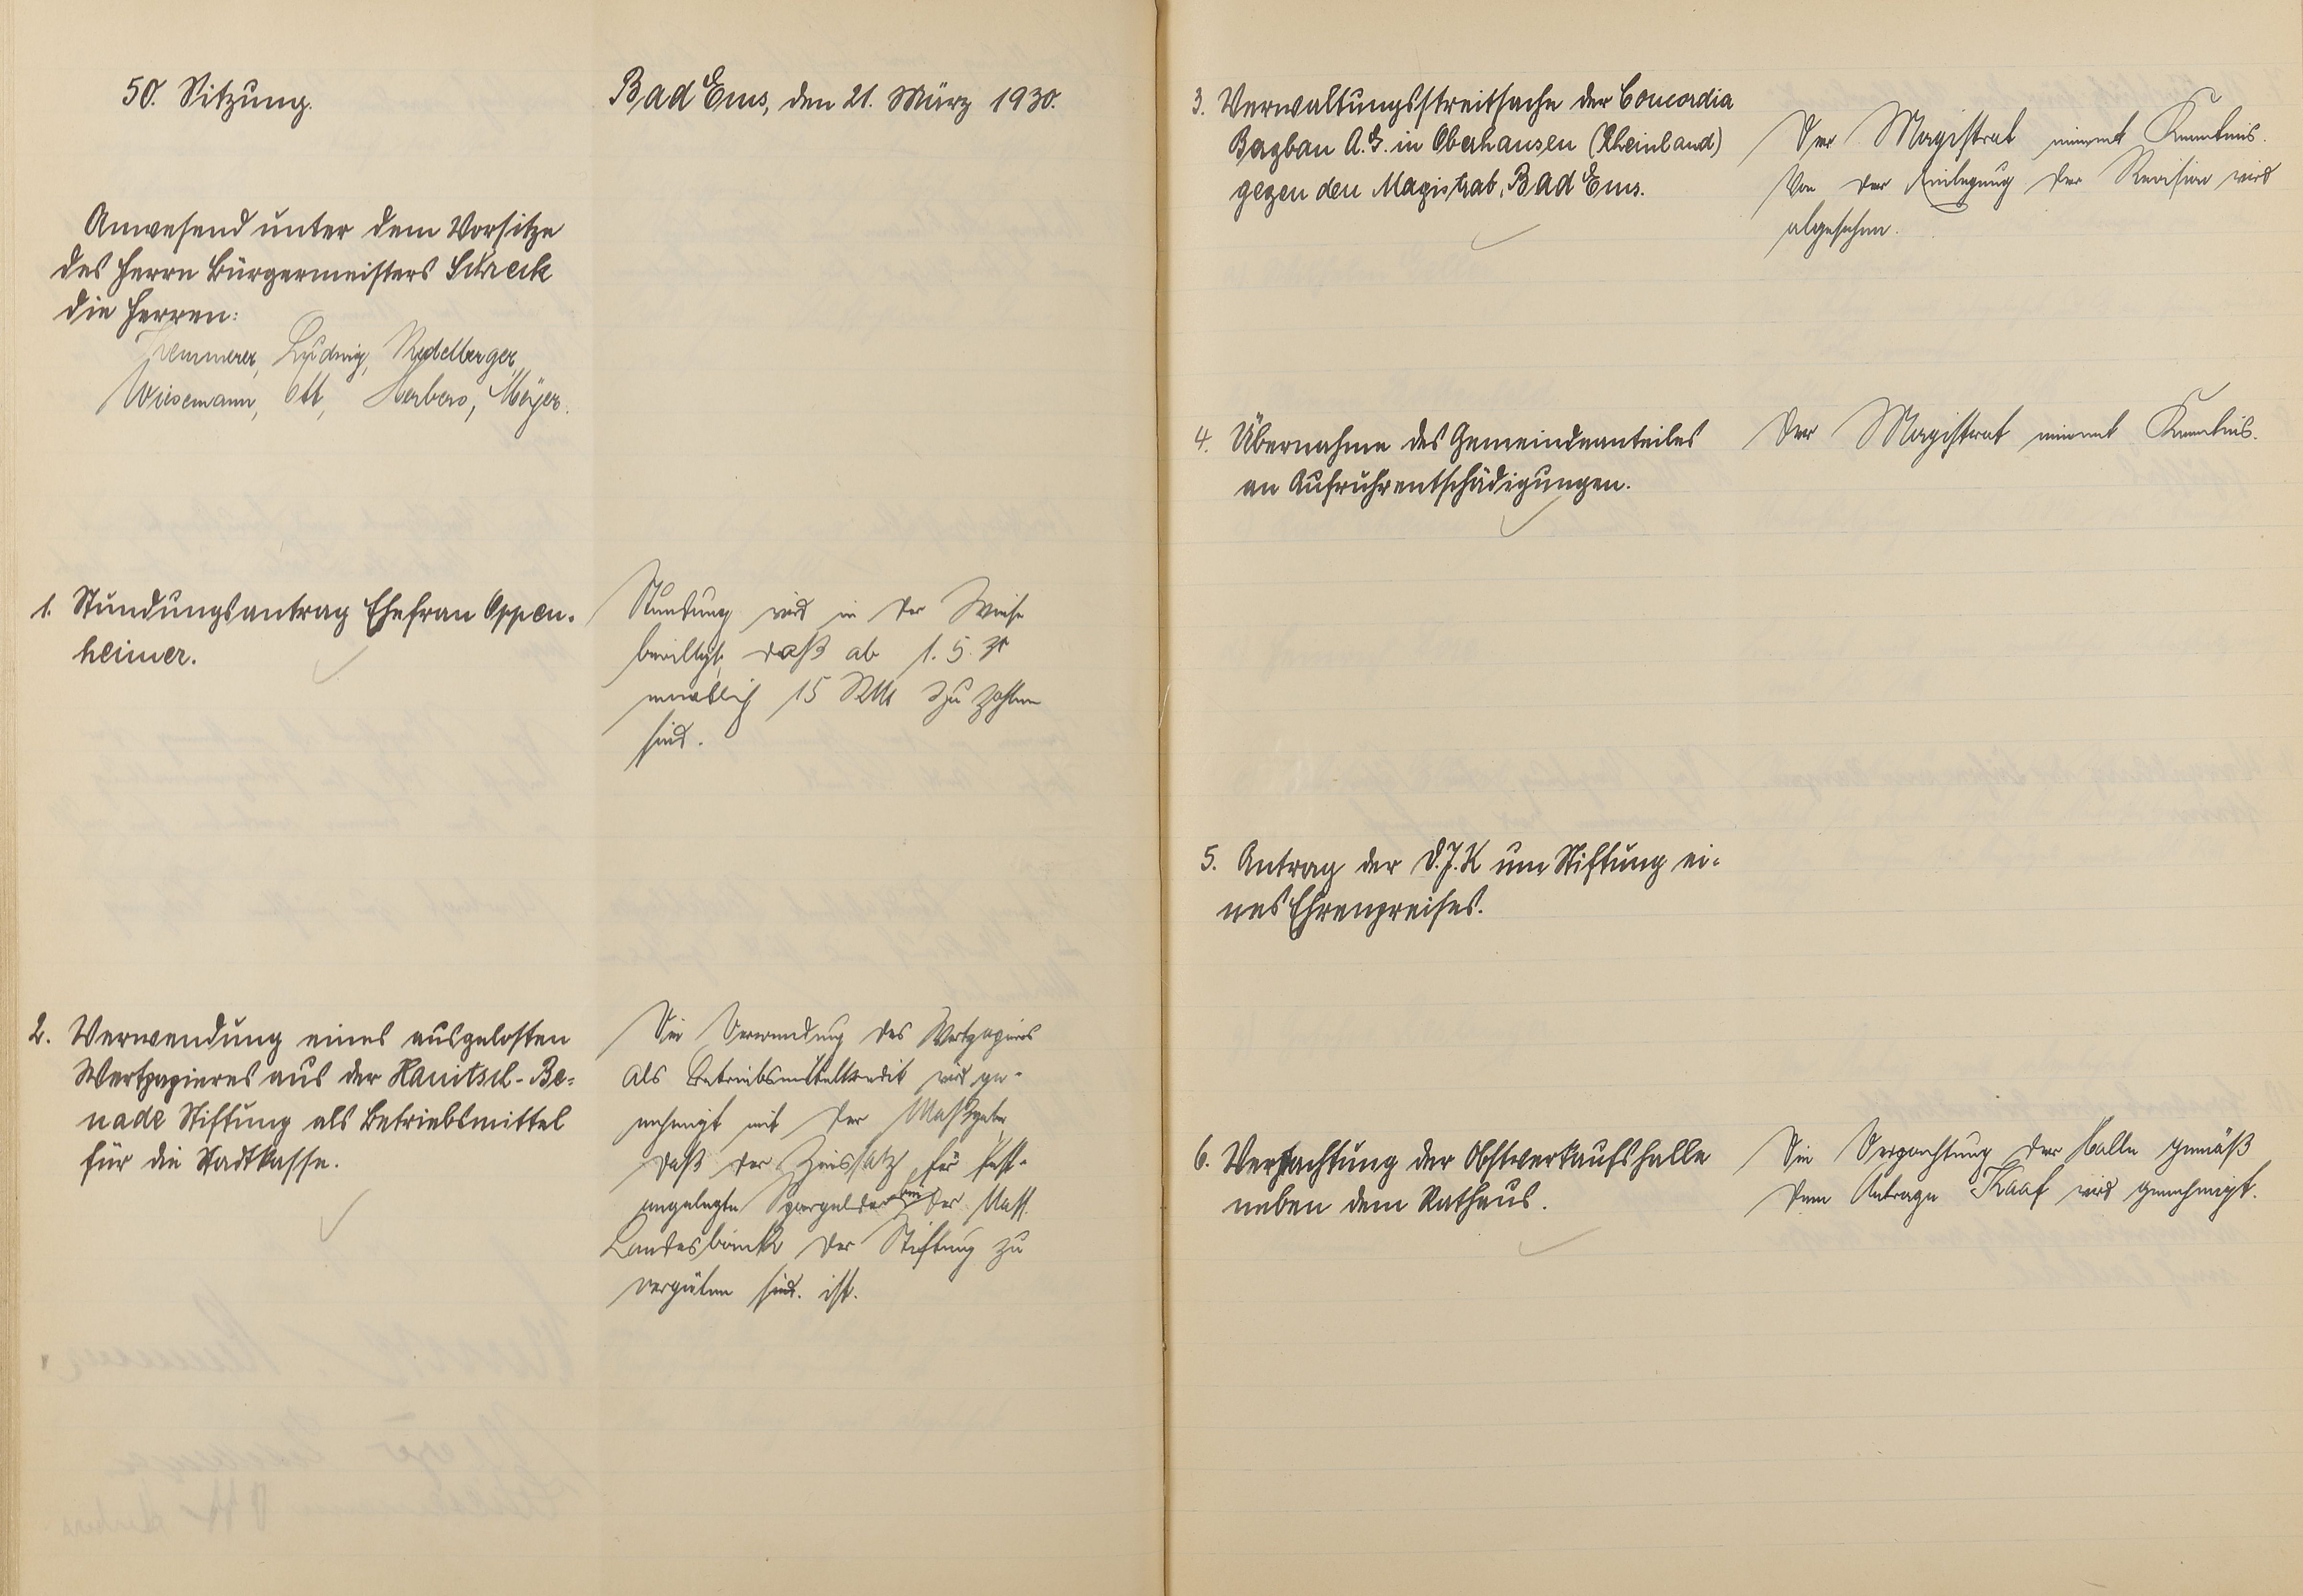 50. Sitzung.
Bad Ems, den 21. März 1930.
Anwesend unter dem Vorsitze
des Herrn Bürgermeisters Schreck
die Herren:
Kemmerer, Ludwig, Redelberger,
Wiesemann, Ott, Herbers, Meyer.
1. Stundungsantrag Ehefrau Oppen-
heimer.
Stundung wird in der Weise
bewilligt, daß ab 1. 5. 30
monatlich 15 RM zu zahlen
sind.
2. Verwendung eines ausgelosten
Wertpapieres aus der Hanitsch-Be-
nade Stiftung als Betriebsmittel
für die Stadtkasse.
Die Verwendung des Wertpapiers
als Betriebsmittelkredit wird ge-
nehmigt mit der Maßgabe,
daß der Zinssatz für fest-
angelegte Spargelder bei der Nass.
Landesbank der Stiftung zu
vergüten sind. ist.
3. Verwaltungsstreitsache der Concordia
Bergbau A.G. in Oberhausen (Rheinland)
gegen den Magistrat, Bad Ems.
Der Magistrat nimmt Kenntnis.
Von der Einlegung der Revision wird
abgesehen.
4. Übernahme des Gemeindeanteiles
an Aufruhrentschädigungen.
Der Magistrat nimmt Kenntnis.
5. Antrag der D.J.K um Stiftung ei-
nes Ehrenpreises.
6. Verpachtung der Obstverkaufshalle
neben dem Rathaus.
Die Verpachtung der Halle gemäß
dem Antrage Kaaf wird genehmigt.